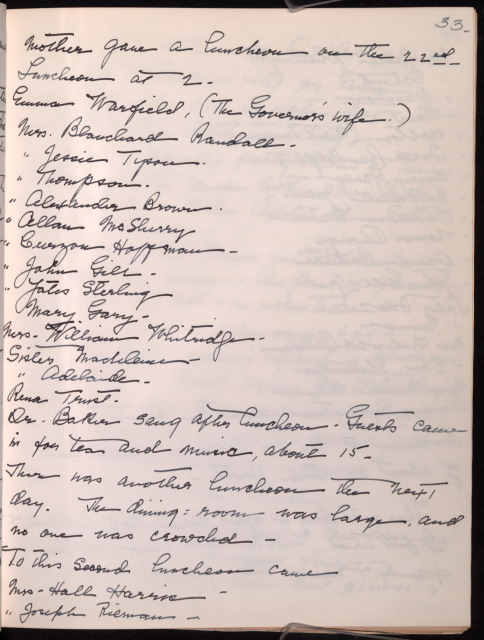 33.
Mother gave a luncheon on the 22nd.
Luncheon at 2 -
Emma Warfield, (The Governor's wife.)
Mrs. Blanchard Randall -
" Jessie Tyson.
" Thompson.
" Alexander Brown.
" Allan McSherry
" Curzon Hoffman -
" John Gill -
" Yates Sterling
" Mary Gary -
Mrs. William Whitridge -
Sister Madeleine -
" Adelaide -
Rena Trust.
Dr. Baker sang after luncheon - Guests came
in for tea and music, about 15 -
There was another luncheon the next
day. The dining-room was large, and
no one was crowded -
To this second luncheon came
Mrs - Hall Harris -
" Joseph Rieman -